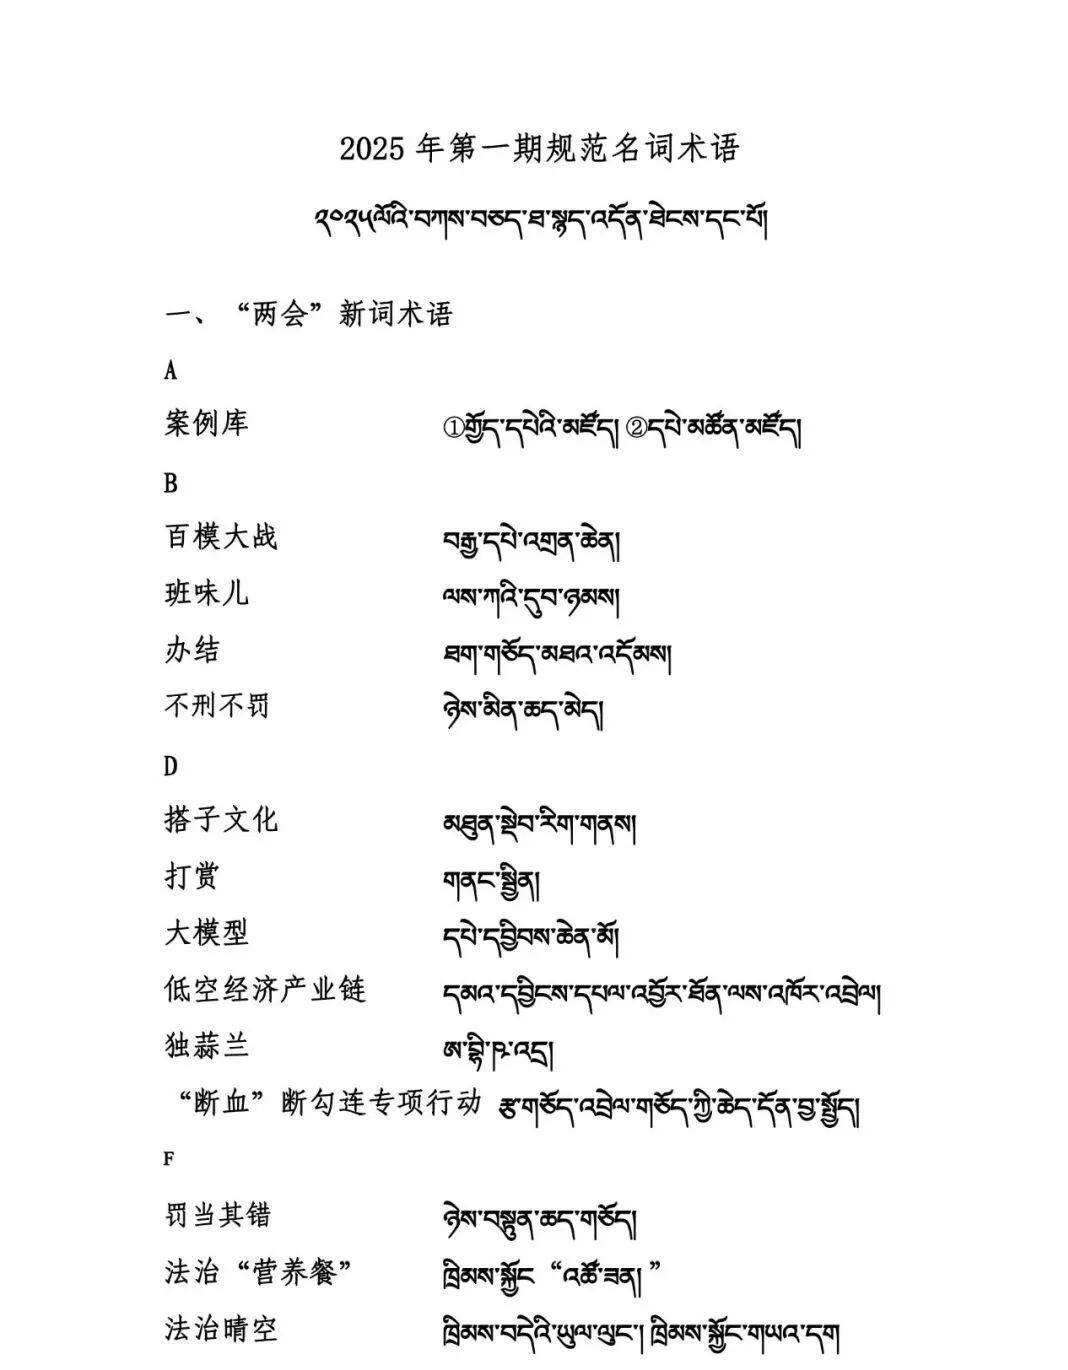 2025 年第一期规范名词术语
༢༠༢༥ལོའི་བཀས་བཅད་ཐ་སྙད་འདོན་ཐེངས་དང་པོ།
一、“两会”新词术语
A
案例库 ①གྱོད་དཔེའི་མཛོད། ②དཔེ་མཚོན་མཛོད།
B
百模大战 བརྒྱ་དཔེ་འགྲན་ཆེན།
班味儿 ལས་ཀའི་དུབ་ཉམས།
办结 ཐག་གཅོད་མཐའ་འདོམས།
不刑不罚 ཉེས་མིན་ཆད་མེད།
D
搭子文化 མཐུན་སྡེབ་རིག་གནས།
打赏 གནང་སྦྱིན།
大模型 དཔེ་དབྱིབས་ཆེན་མོ།
低空经济产业链 དམའ་དབྱིངས་དཔལ་འབྱོར་ཐོན་ལས་འཁོར་འབྲེལ།
独蒜兰
“断血”断勾连专项行动 རྩ་གཅོད་འབྲེལ་གཅོད་ཀྱི་ཆེད་དོན་བྱ་སྤྱོད།
F
罚当其错 ཉེས་བསྟུན་ཆད་གཅོད།
法治“营养餐” ཁྲིམས་སྐྱོང“འཚོ་ཟན།”
法治晴空 ཁྲིམས་བདེའི་ཡུལ་ལུང་། ཁྲིམས་སྐྱོང་གཡའ་དག